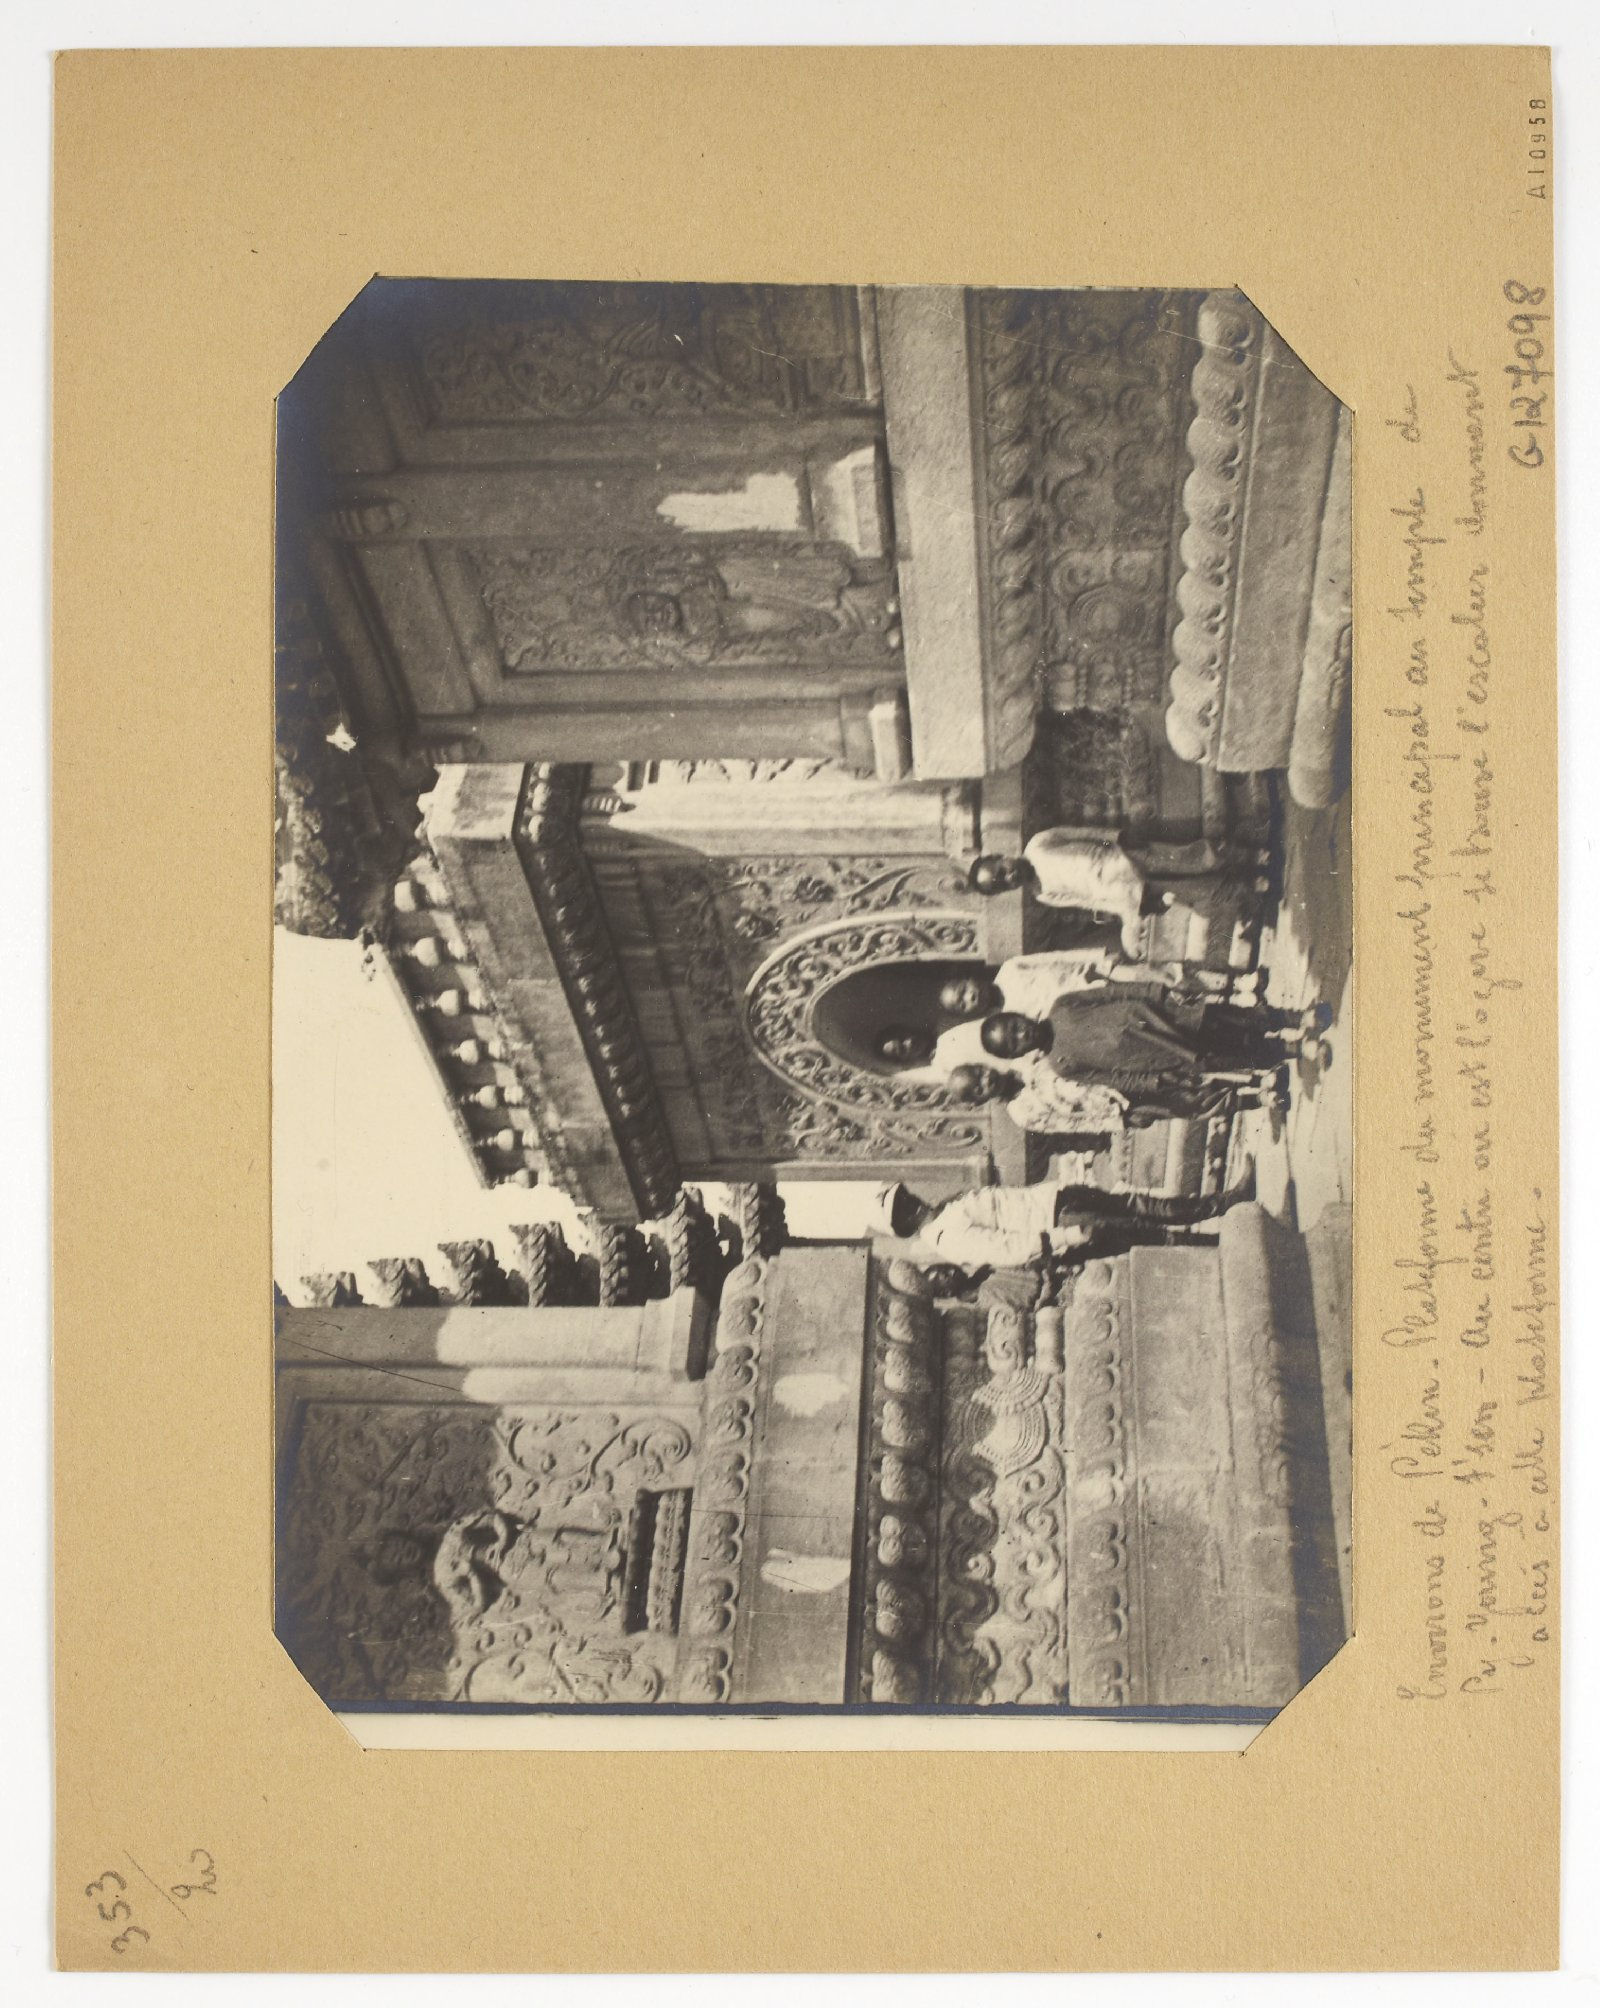 353
Environs de Pékin. Plateforme du monument principal au temple de
Py. Young. t'sen - Au centre on est l'ogive se trouve l'escalier donnant
accés a cette plateforme.
G127098
A10958